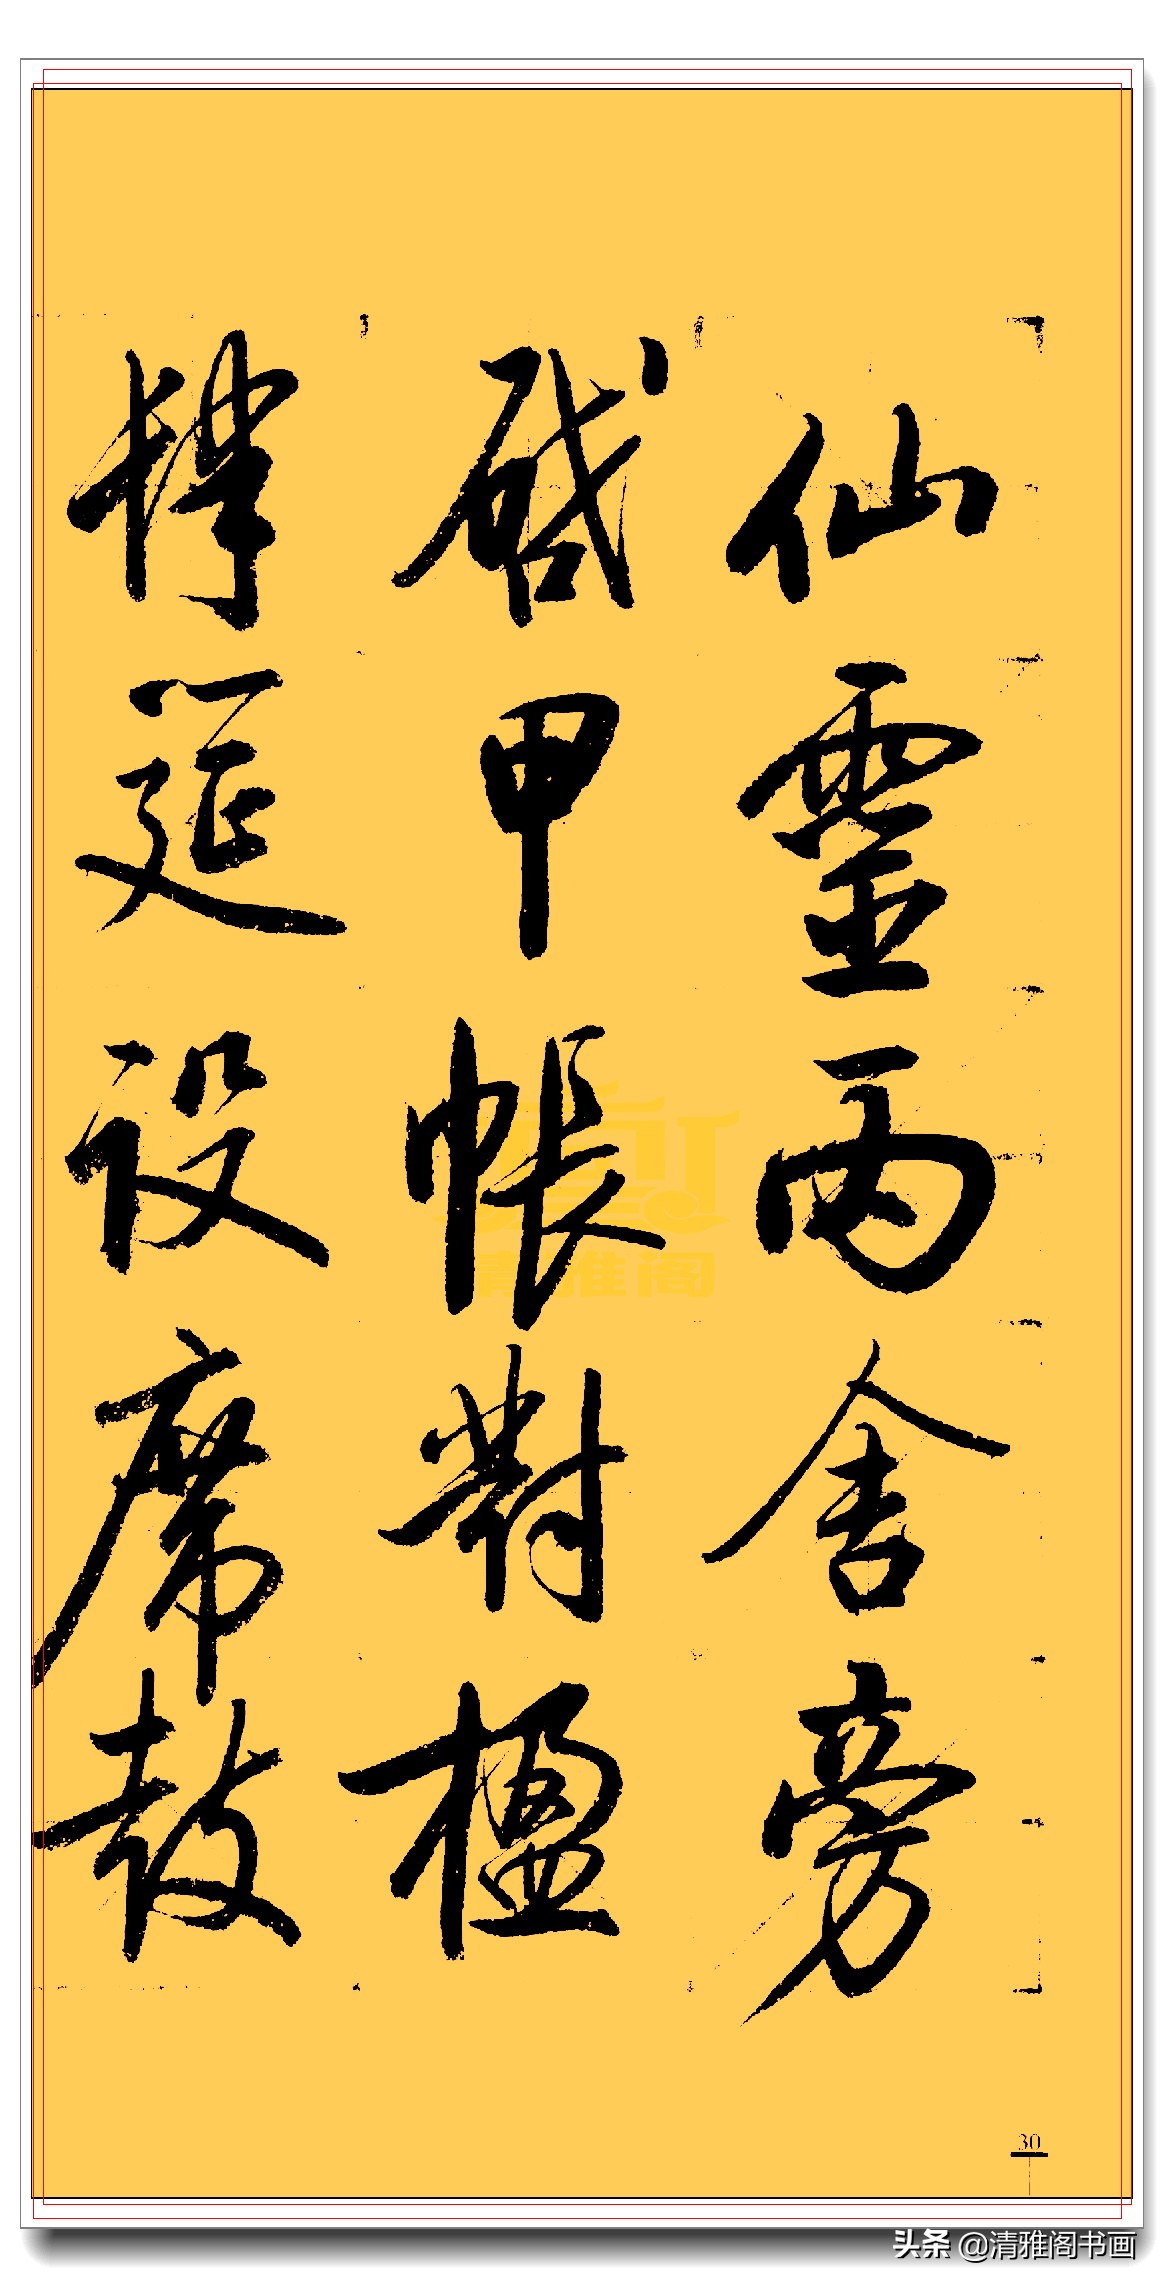 仙靈丙舍旁
啟甲帳對楹
肆筵設席鼓
青雅阁
30
头条 @清雅阁书画